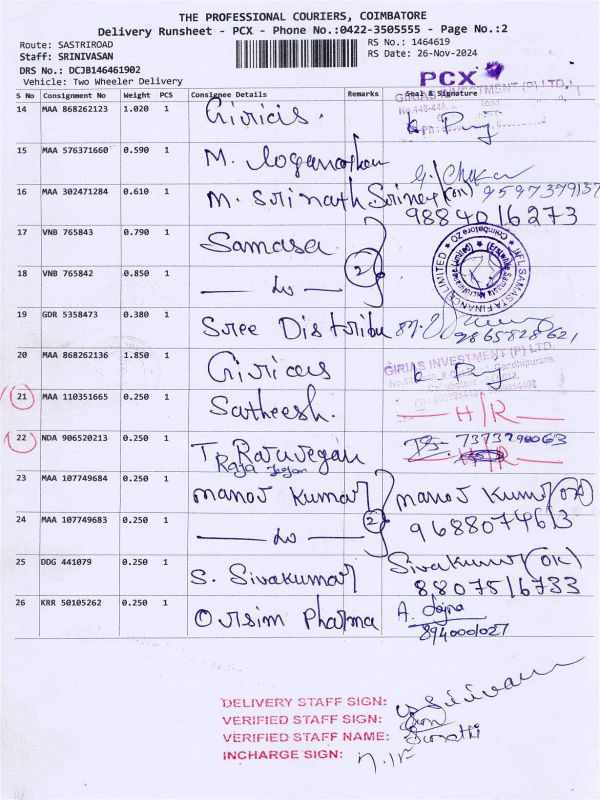 THE PROFESSIONAL COURIERS, COIMBATORE
Delivery Runsheet - PCX - Phone No.:0422-3505555 - Page No.:2
Route: SASTRIROAD
RS No.: 1464619
Staff: SRINIVASAN
RS Date: 26-Nov-2024
DRS No.: DCJB146461902
Vehicle: Two Wheeler Delivery
PCX
S No Consignment No Weight PCS Consignee Details Remarks Seal & Signature
14 MAA 868262123 1.020 1 Giricis.
GIRIAS INVESTMENT (P) LTD.
15 MAA 576371660 0.590 1 M. loganathan
16 MAA 302471284 0.610 1 M. Srinath Srinath (OK) 9597379137
9884016273
17 VNB 765843 0.790 1 Samasa
18 VNB 765842 0.850 1 — Lo — 2
IIFL SAMASTA FINANCE LIMITED
Coimbatore ZO
19 GDR 5358473 0.380 1 Sree Distribu
9865828621
20 MAA 868262136 1.850 1 Giricas
GIRIAS INVESTMENT (P) LTD.
21 MAA 110351665 0.250 1 Satheesh. — H/R —
22 NDA 906520213 0.250 1 T. 7373790063
Raja H/R
23 MAA 107749684 0.250 1 manov Kumar manov Kumar (OK)
24 MAA 107749683 0.250 1 — Lo — 2 9688074613
25 DDG 441079 0.250 1 S. Sivakumar Sivakumar (OK)
8807516733
26 KRR 50105262 0.250 1 Oursim Pharma A.
8940001027
DELIVERY STAFF SIGN:
VERIFIED STAFF SIGN:
VERIFIED STAFF NAME:
INCHARGE SIGN: